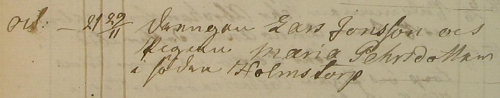 21 22/11 Drängen Lars Jonsson och
Pigan Maria Pehrsdotter
i Södra Holmstorp